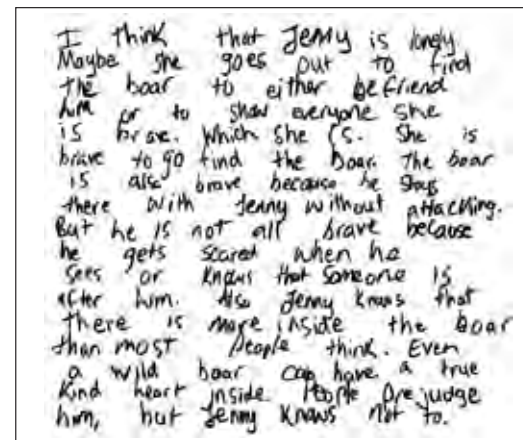 I think that Jenny is lonely
Maybe she goes out to find
the boar to either befriend
him or to show everyone she
is brave. Which she is. She is
brave to go find the boar. The boar
is also brave because he stays
there with Jenny without attacking.
But he is not all brave because
he gets scared when he
sees or knows that someone is
after him. Also Jenny knows that
there is more inside the boar
than most people think. Even
a wild boar can have a true
kind heart inside. People prejudge
him, but Jenny knows not to.